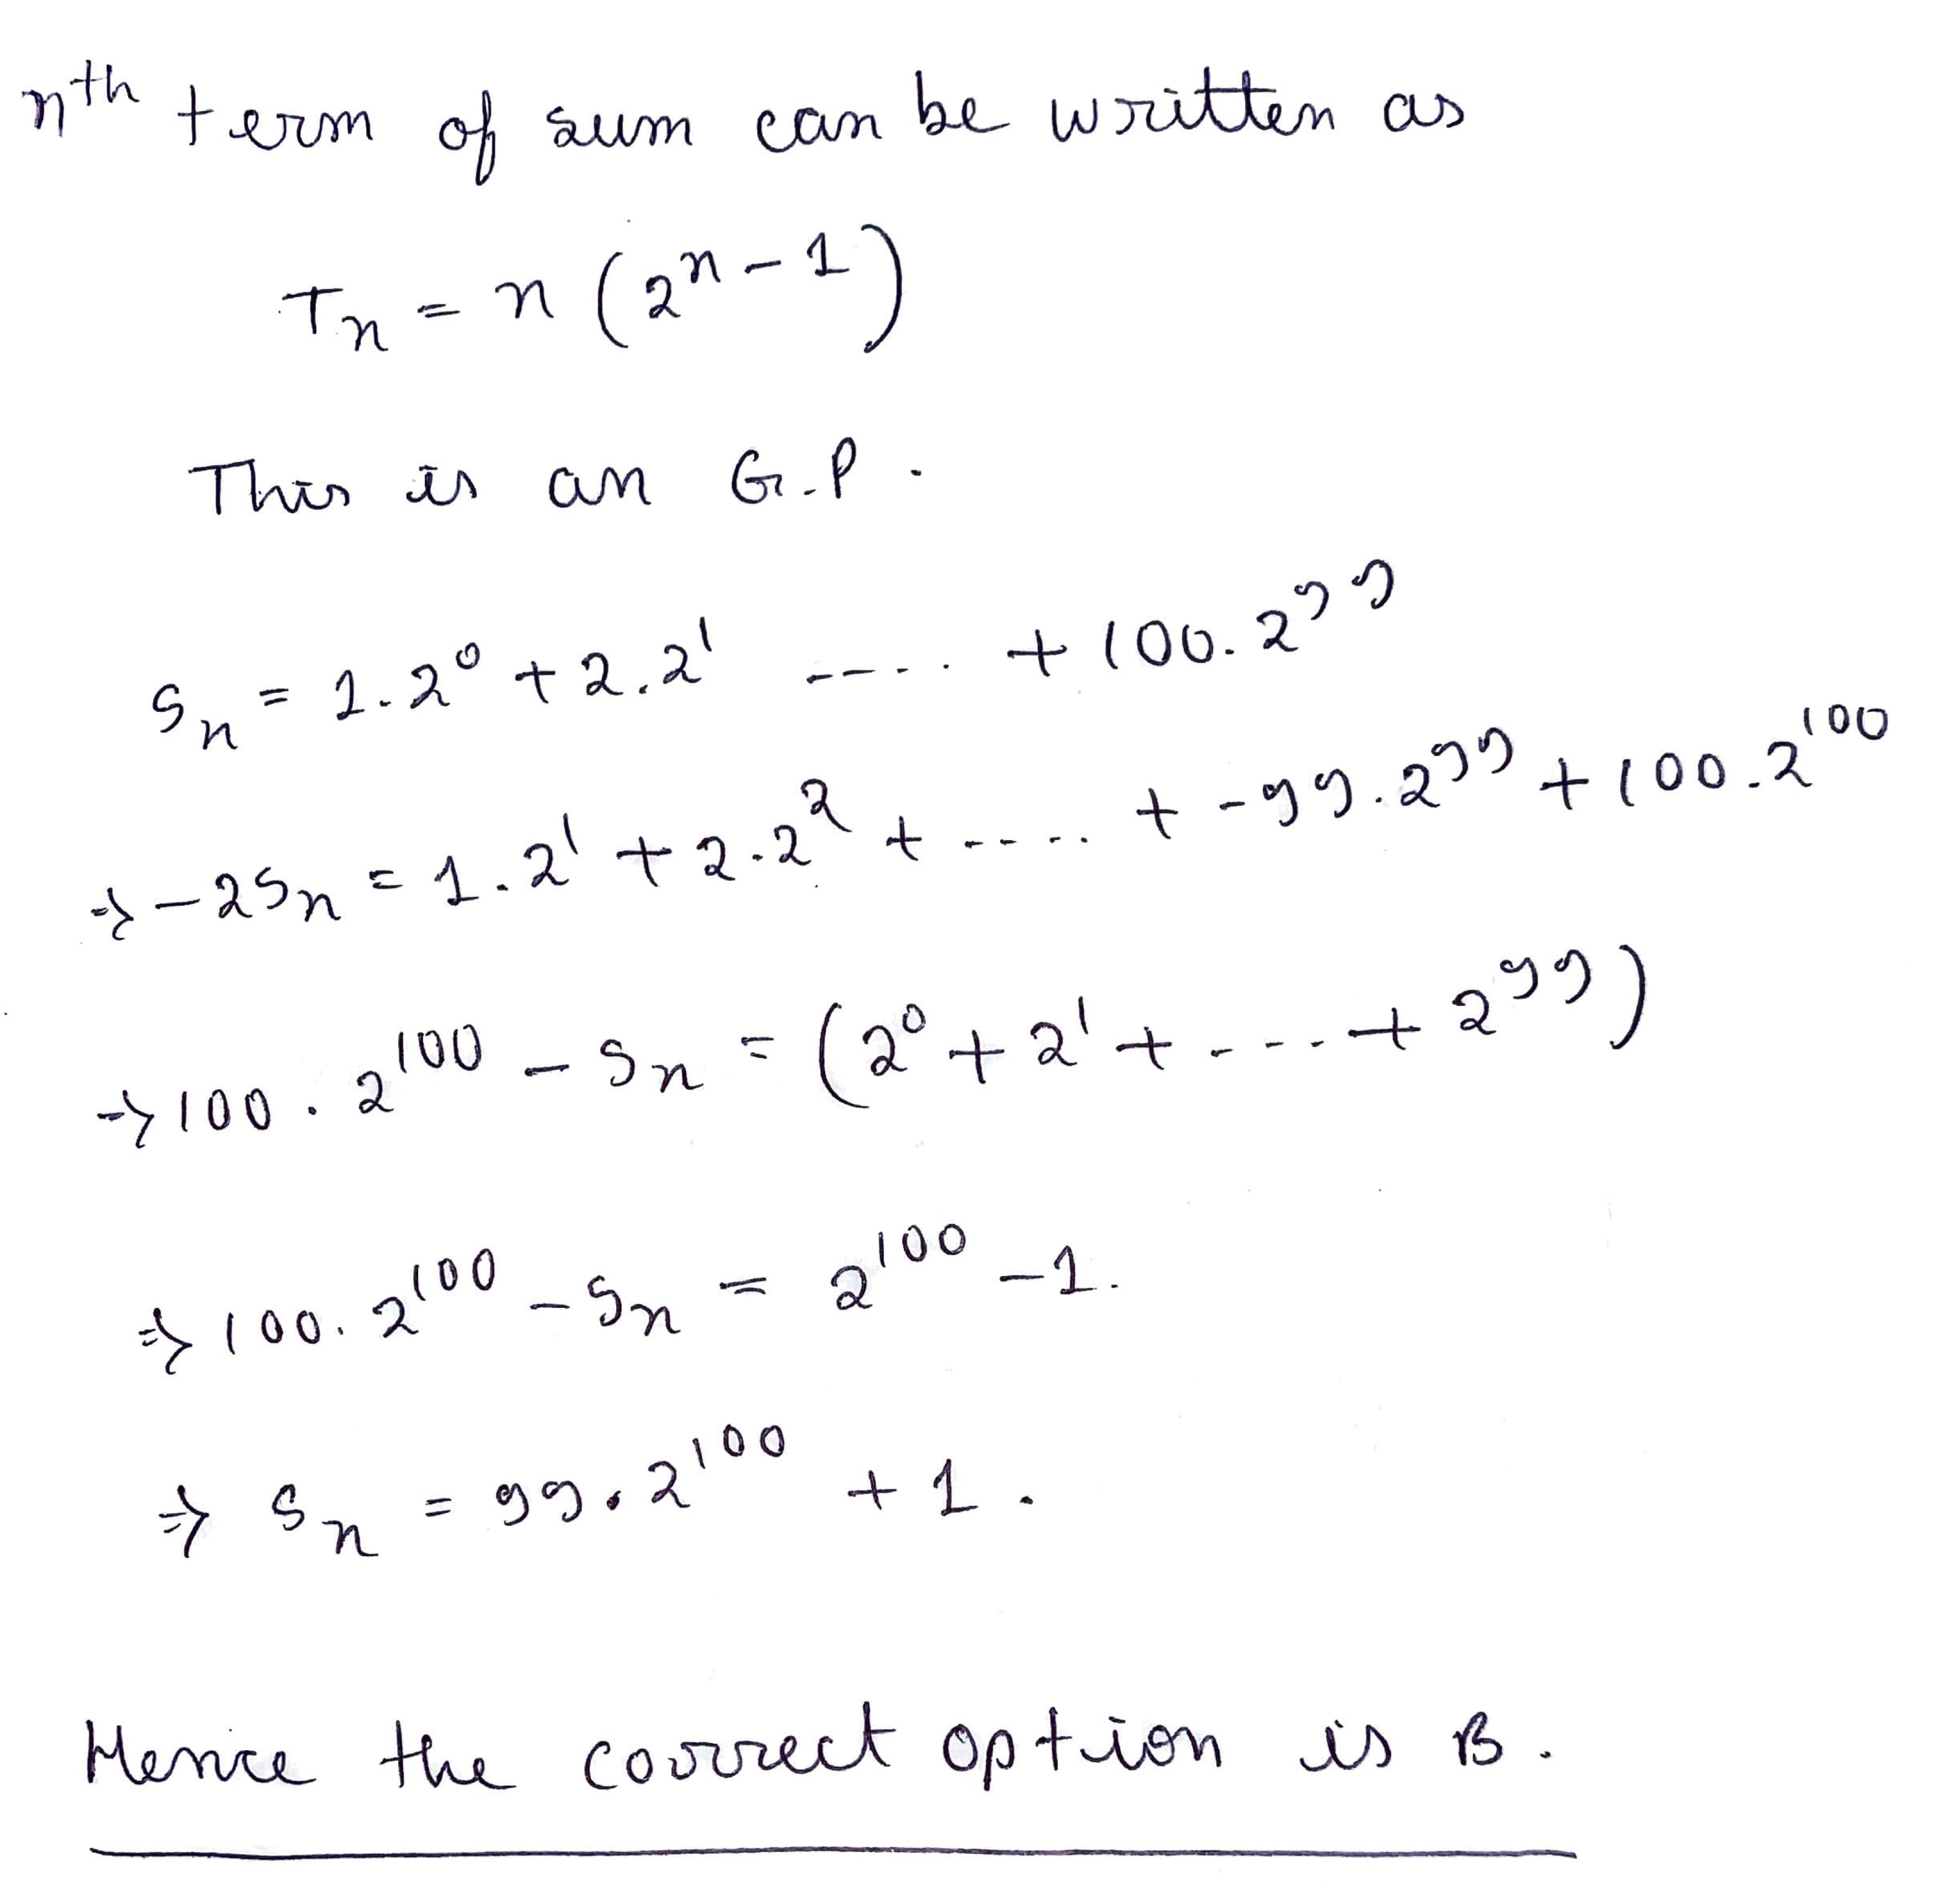 nth term of sum can be written as
Tn = n (2^n-1)
This is an G.P.
Sn = 1.2^0 + 2.2^1 ----.. + 100.2^99
⇒ -2Sn = 1.2^1 + 2.2^2 + ----.. + -99.2^99 + 100.2^100
⇒ 100.2^100 - Sn = (2^0 + 2^1 + ---- + 2^99)
⇒ 100.2^100 - Sn = 2^100 - 1.
⇒ Sn = 99.2^100 + 1.
Hence the correct option is B.